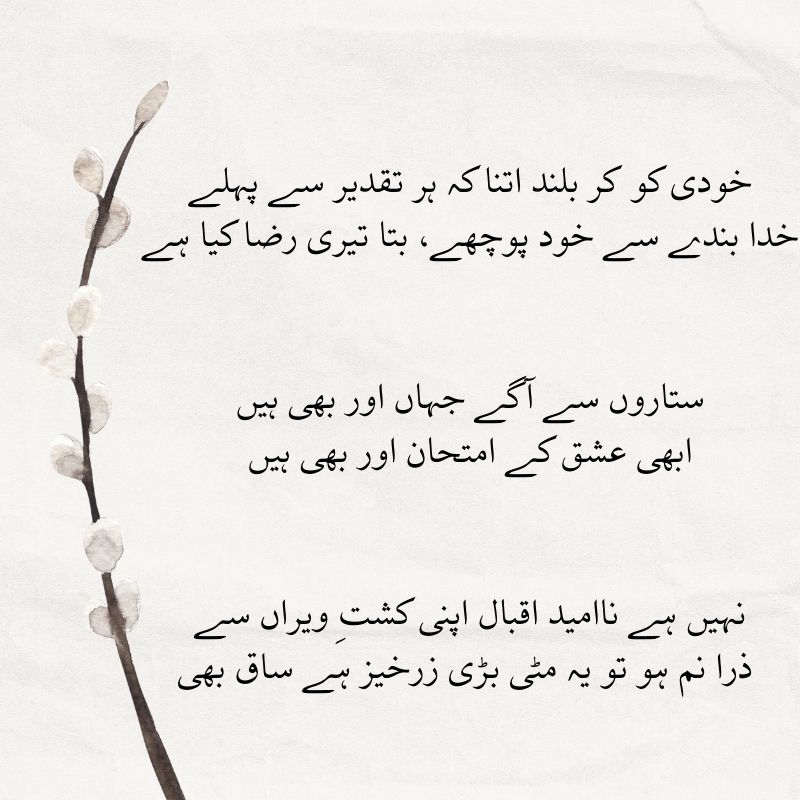 خودی کو کر بلند اتنا کہ ہر تقدیر سے پہلے
خدا بندے سے خود پوچھے، بتا تیری رضا کیا ہے
ستاروں سے آگے جہاں اور بھی ہیں
ابھی عشق کے امتحان اور بھی ہیں
نہیں ہے ناامید اقبال اپنی کشتِ ویراں سے
ذرا نم ہو تو یہ مٹی بڑی زرخیز ہے ساق بھی